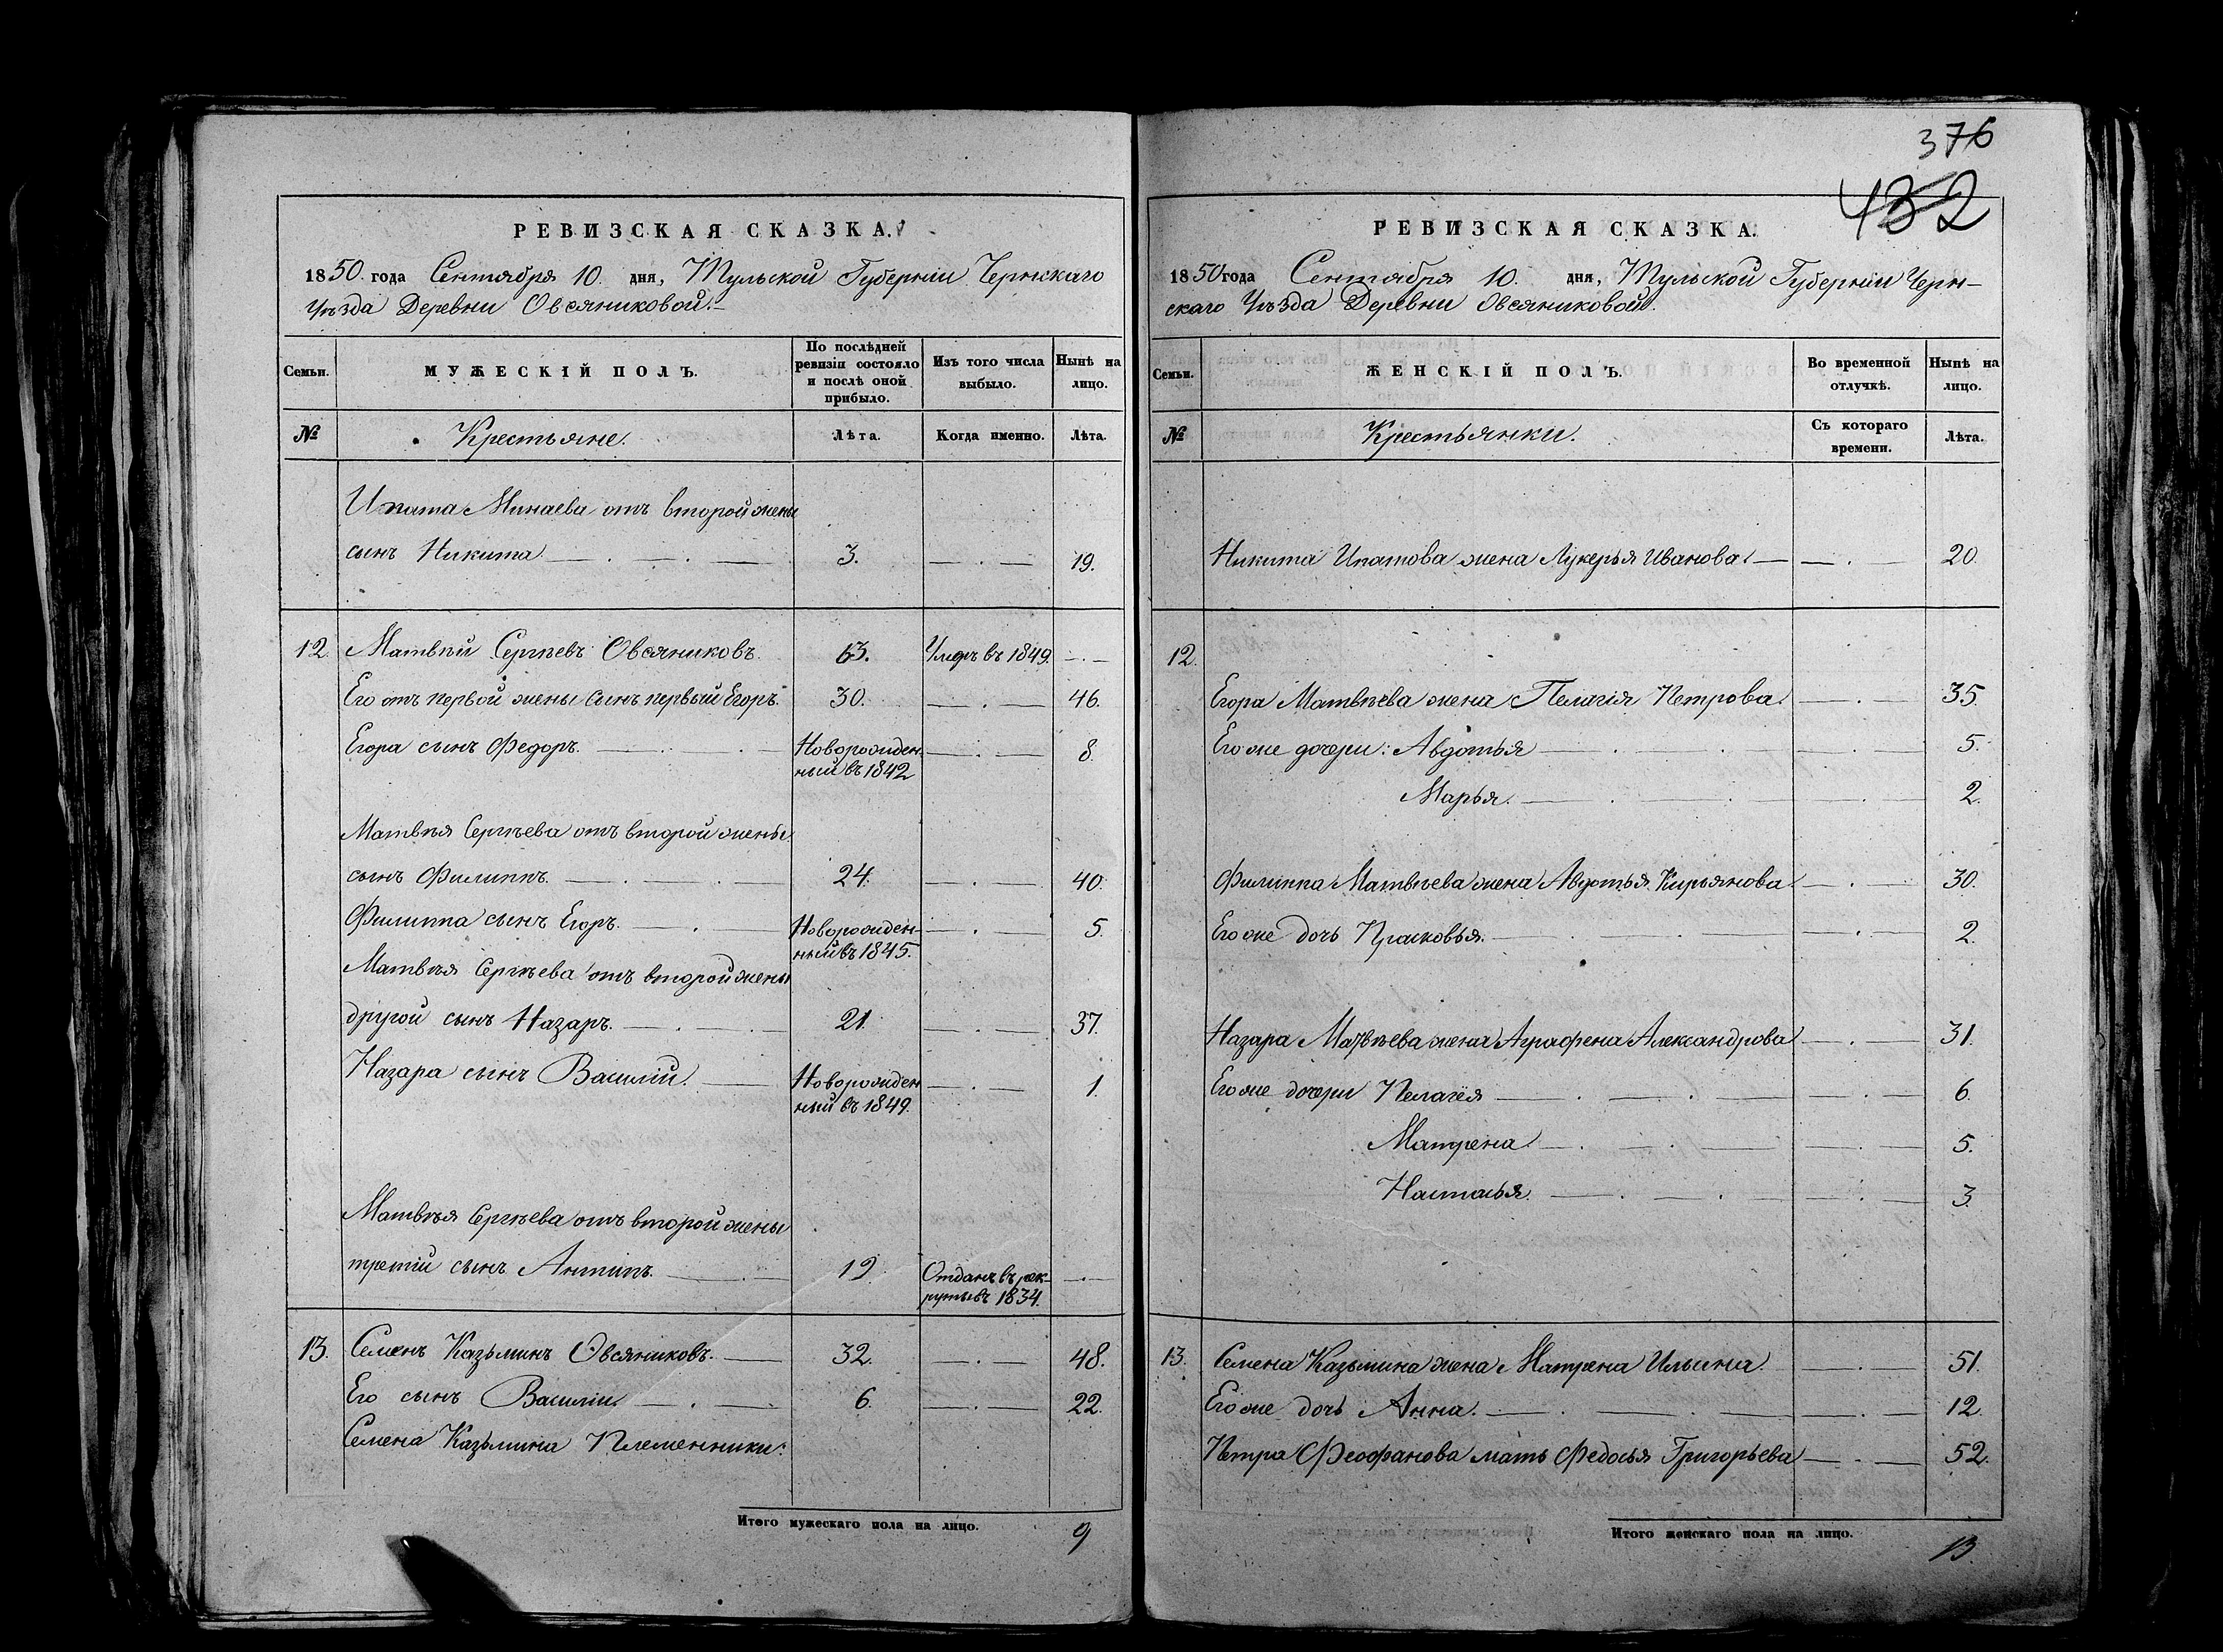 РЕВИЗСКАЯ СКАЗКА.
1850. года Сентября 10. дня, Тульской Губерніи Чернскаго
Уѣзда Деревни Овсяниковой.
Семьи.
МУЖЕСКІЙ ПОЛЪ.
По послѣдней ревизіи состояло и послѣ оной прибыло.
Изъ того числа выбыло.
Нынѣ на лицо.
№ Крестьяне. Лѣта. Когда именно. Лѣта.
Ипата Минаева отъ второй жены
сынъ Никита 3. 19.
12. Матвѣй Сергѣевъ Овсяниковъ 63. Умеръ въ 1849.
Его отъ первой жены сынъ первый Егоръ. 30. 46.
Егора сынъ Федоръ. Новорожден 8.
ный въ 1842
Матвѣя Сергѣева отъ второй жены
сынъ Филиппъ. 24. 40.
Филиппа сынъ Егоръ. Новорожден- 5.
ный въ 1845.
Матвѣя Сергѣева отъ второй жены
другой сынъ Назаръ. 21. 37.
Назара сынъ Василій. Новорожден 1.
ный въ 1849.
Матвѣя Сергѣева отъ второй жены
третій сынъ Антипъ. 19. Отданъ въ рек-
руты въ 1834.
13. Семенъ Казьминъ Овсяниковъ. 32. 48.
Его сынъ Василій 6. 22.
Семена Казьмина Племенники:
Итого мужескаго пола на лицо. 9
376
432
РЕВИЗСКАЯ СКАЗКА.
1850 года Сентября 10. дня, Тульской Губерніи Черн-
скаго Уѣзда Деревни Овсяниковой.
Семьи.
ЖЕНСКІЙ ПОЛЪ.
Во временной отлучкѣ.
Нынѣ на лицо.
№ Крестьянки. Съ котораго времени. Лѣта.
Никита Ипатова жена Лукерья Иванова. 20.
12.
Егора Матвѣева жена Пелагія Петрова. 35.
Его же дочери: Авдотья 5.
Марья. 2.
Филиппа Матвѣева жена Авдотья Кирьянова 30.
Его же дочь Прасковья. 2.
Назара Матвѣева жена Аграфена Александрова 31.
Его же дочери Пелагея 6.
Матрена 5.
Настасья. 3.
13. Семена Казьмина жена Матрена Ильина. 51.
Его же дочь Анна. 12.
Петра Феофанова мать Федосья Григорьева 52.
Итого женскаго пола на лицо. 13